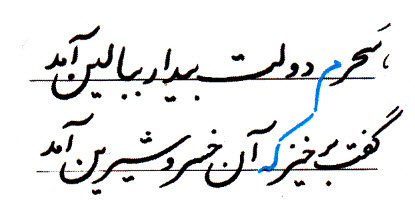 سحرم دولت بیدار ببالین آمد
گفت برخیز که آن خسرو شیرین آمد